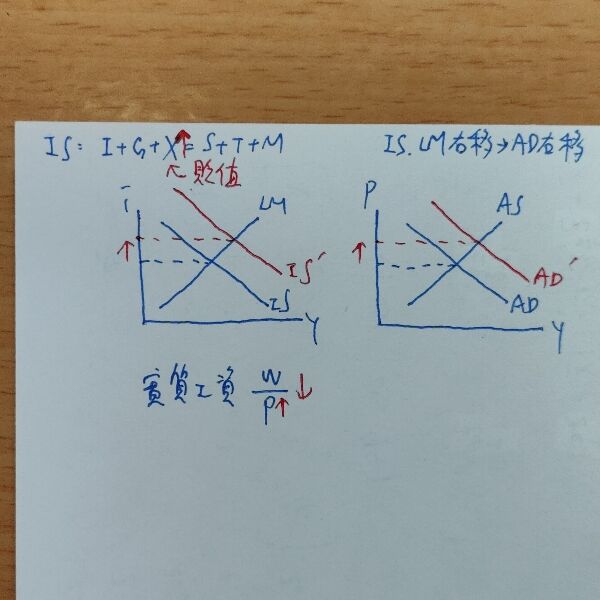 IS: I+G+X↑= S+T+M
↖貶值
IS.LM右移→AD右移
i
LM
↑
IS'
IS
Y
P
AS
↑
AD'
AD
Y
實質工資 W/P↑ ↓